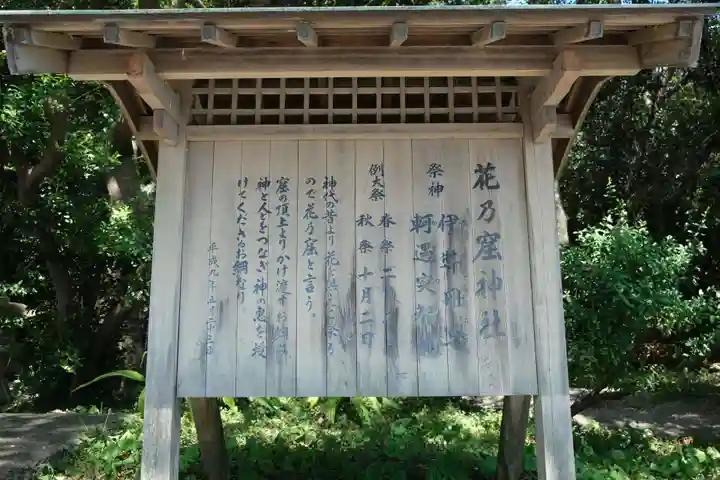 花乃窟神社
祭神
伊弉冊尊
軻遇突智
例大祭
春祭 二月二日
秋祭 十月二日
神代の昔より花を供え祭る
ので花乃窟と言う。
窟の頂上よりかけ渡すお綱は
神と人とをつなぎ神の恵を授
けてくださるお綱なり
平成九年五月二十三日